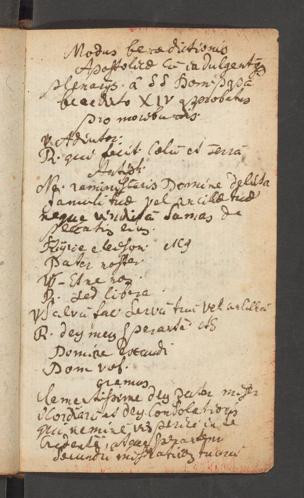 Modus benedictionis
Apostolicæ cu indulgentys
plenarys. â SS Dom: Papâ
benedicto XIV approbatus
pro moribundis
V. Adiutor:
R. qui fecit Cœlu et terrâ
Antiph:
Ne reminiscaris Domine delicta
famuli tui vel ancillæ tuæ
neque vindictâ sumas de
peccatis eius.
Kyrie eleison etc
Pater noster
V. Et ne nos
R. sed libera
V. Salvu fac Servu tuu vel ancillâ
R. deus meus sperantê etc
Domine exaudi
Dom vob.
oremus
Clementissime deus pater miseri
cordiarum deus consolationis
qui neminê vis perire in te
Credentê, atque sperantem
secundu multitudinê tuarû